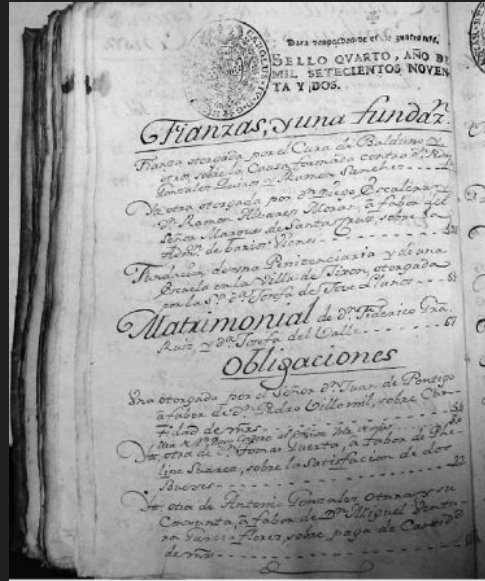 Para despachos de oficio quatro mrs.
SELLO QVARTO, AÑO DE
MIL SETECIENTOS NOVEN
TA Y DOS.
Fianzas, y una fundaz.n
Fianza otorgada por el Cura de Balduno y
otros, sobre la Causa formada contra Dn.
Gonzales Quiros y Ramon Sanches
Yt. otra otorgada por Dn. Diego Escalera y
Dn. Ramon Alvares Moran, a fabor del
Señor Marques de Santa Cruz, sobre la
Admon. de barios Vienes
Fundacion de una Penitenciaria y de una
Escuela en la Villa de Jixon, otorgada
por la S.ra D.a Josefa de Jove Llanos
Matrimonial de Dn. Federico Gra.
Ruiz, y D.a Josefa del Valle 67
Obligaciones
Una otorgada por el Señor Dn. Juan de Pontigo
a fabor de Dn. Pedro Villamil, sobre Can-
tidad de mrs.
Yt. otra de Tomas Huerta, a fabor de Phe-
lipe Suarez, sobre la Satisfacion de dos
Bueyes
Yt. otra de Antonio Gonzales Otura y su
Conjunta, a fabor de Dn. Miguel Ventu-
ra Garcia Florez, sobre paga de Cantid.d
de mrs.